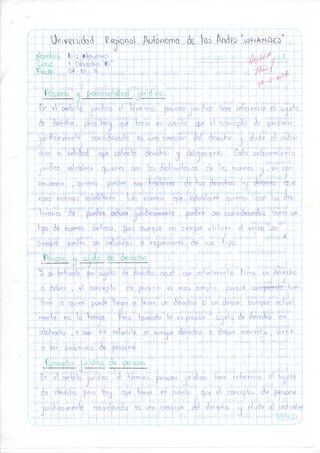 Universidad Regional Autónoma de los Andes "UNIANDES"
Nombre: Navarro
Curso: 1 Derecho "B"
Fecha: 04 - 01 - 16
Persona y personalidad jurídica.
En el ámbito jurídico el término persona jurídica hace referencia al sujeto
de derecho, pero hay que tener en cuenta que el concepto de persona,
jurídicamente considerado es una creación del derecho y alude al indivi
duo o entidad que ostenta derechos y obligaciones. Cada ordenamiento
jurídico establece quienes son los destinatarios de las normas y, en con
secuencia, quienes pueden ser titulares de los derechos y deberes que
esas normas establecen. Las normas que establecen quienes son los des
tinatarios de pueden actuar jurídicamente pueden ser consideradas como un
tipo de normas porque no siempre utilicen el verbo
siempre pueden ser reducidas a expresiones de ese tipo.
Persona y sujeto de derecho
Si se entiende por sujeto de derecho aquel que actualmente tiene un derecho
o deber, el concepto de persona es más amplio porque comprende tam
bién a quien puede llegar a tener un derecho o un deber, aunque actual
mente no lo tenga. Pero tomada la expresión: sujeto de derecho en
abstracto, o sea sin referirla a ningún derecho o deber concreto, viene
a ser sinónimo de persona.
Concepto jurídico de persona
En el ámbito jurídico el término persona jurídica hace referencia al sujeto
de derecho pero hay que tener en cuenta que el concepto de persona
jurídicamente considerado es una creación del derecho y alude al individuo